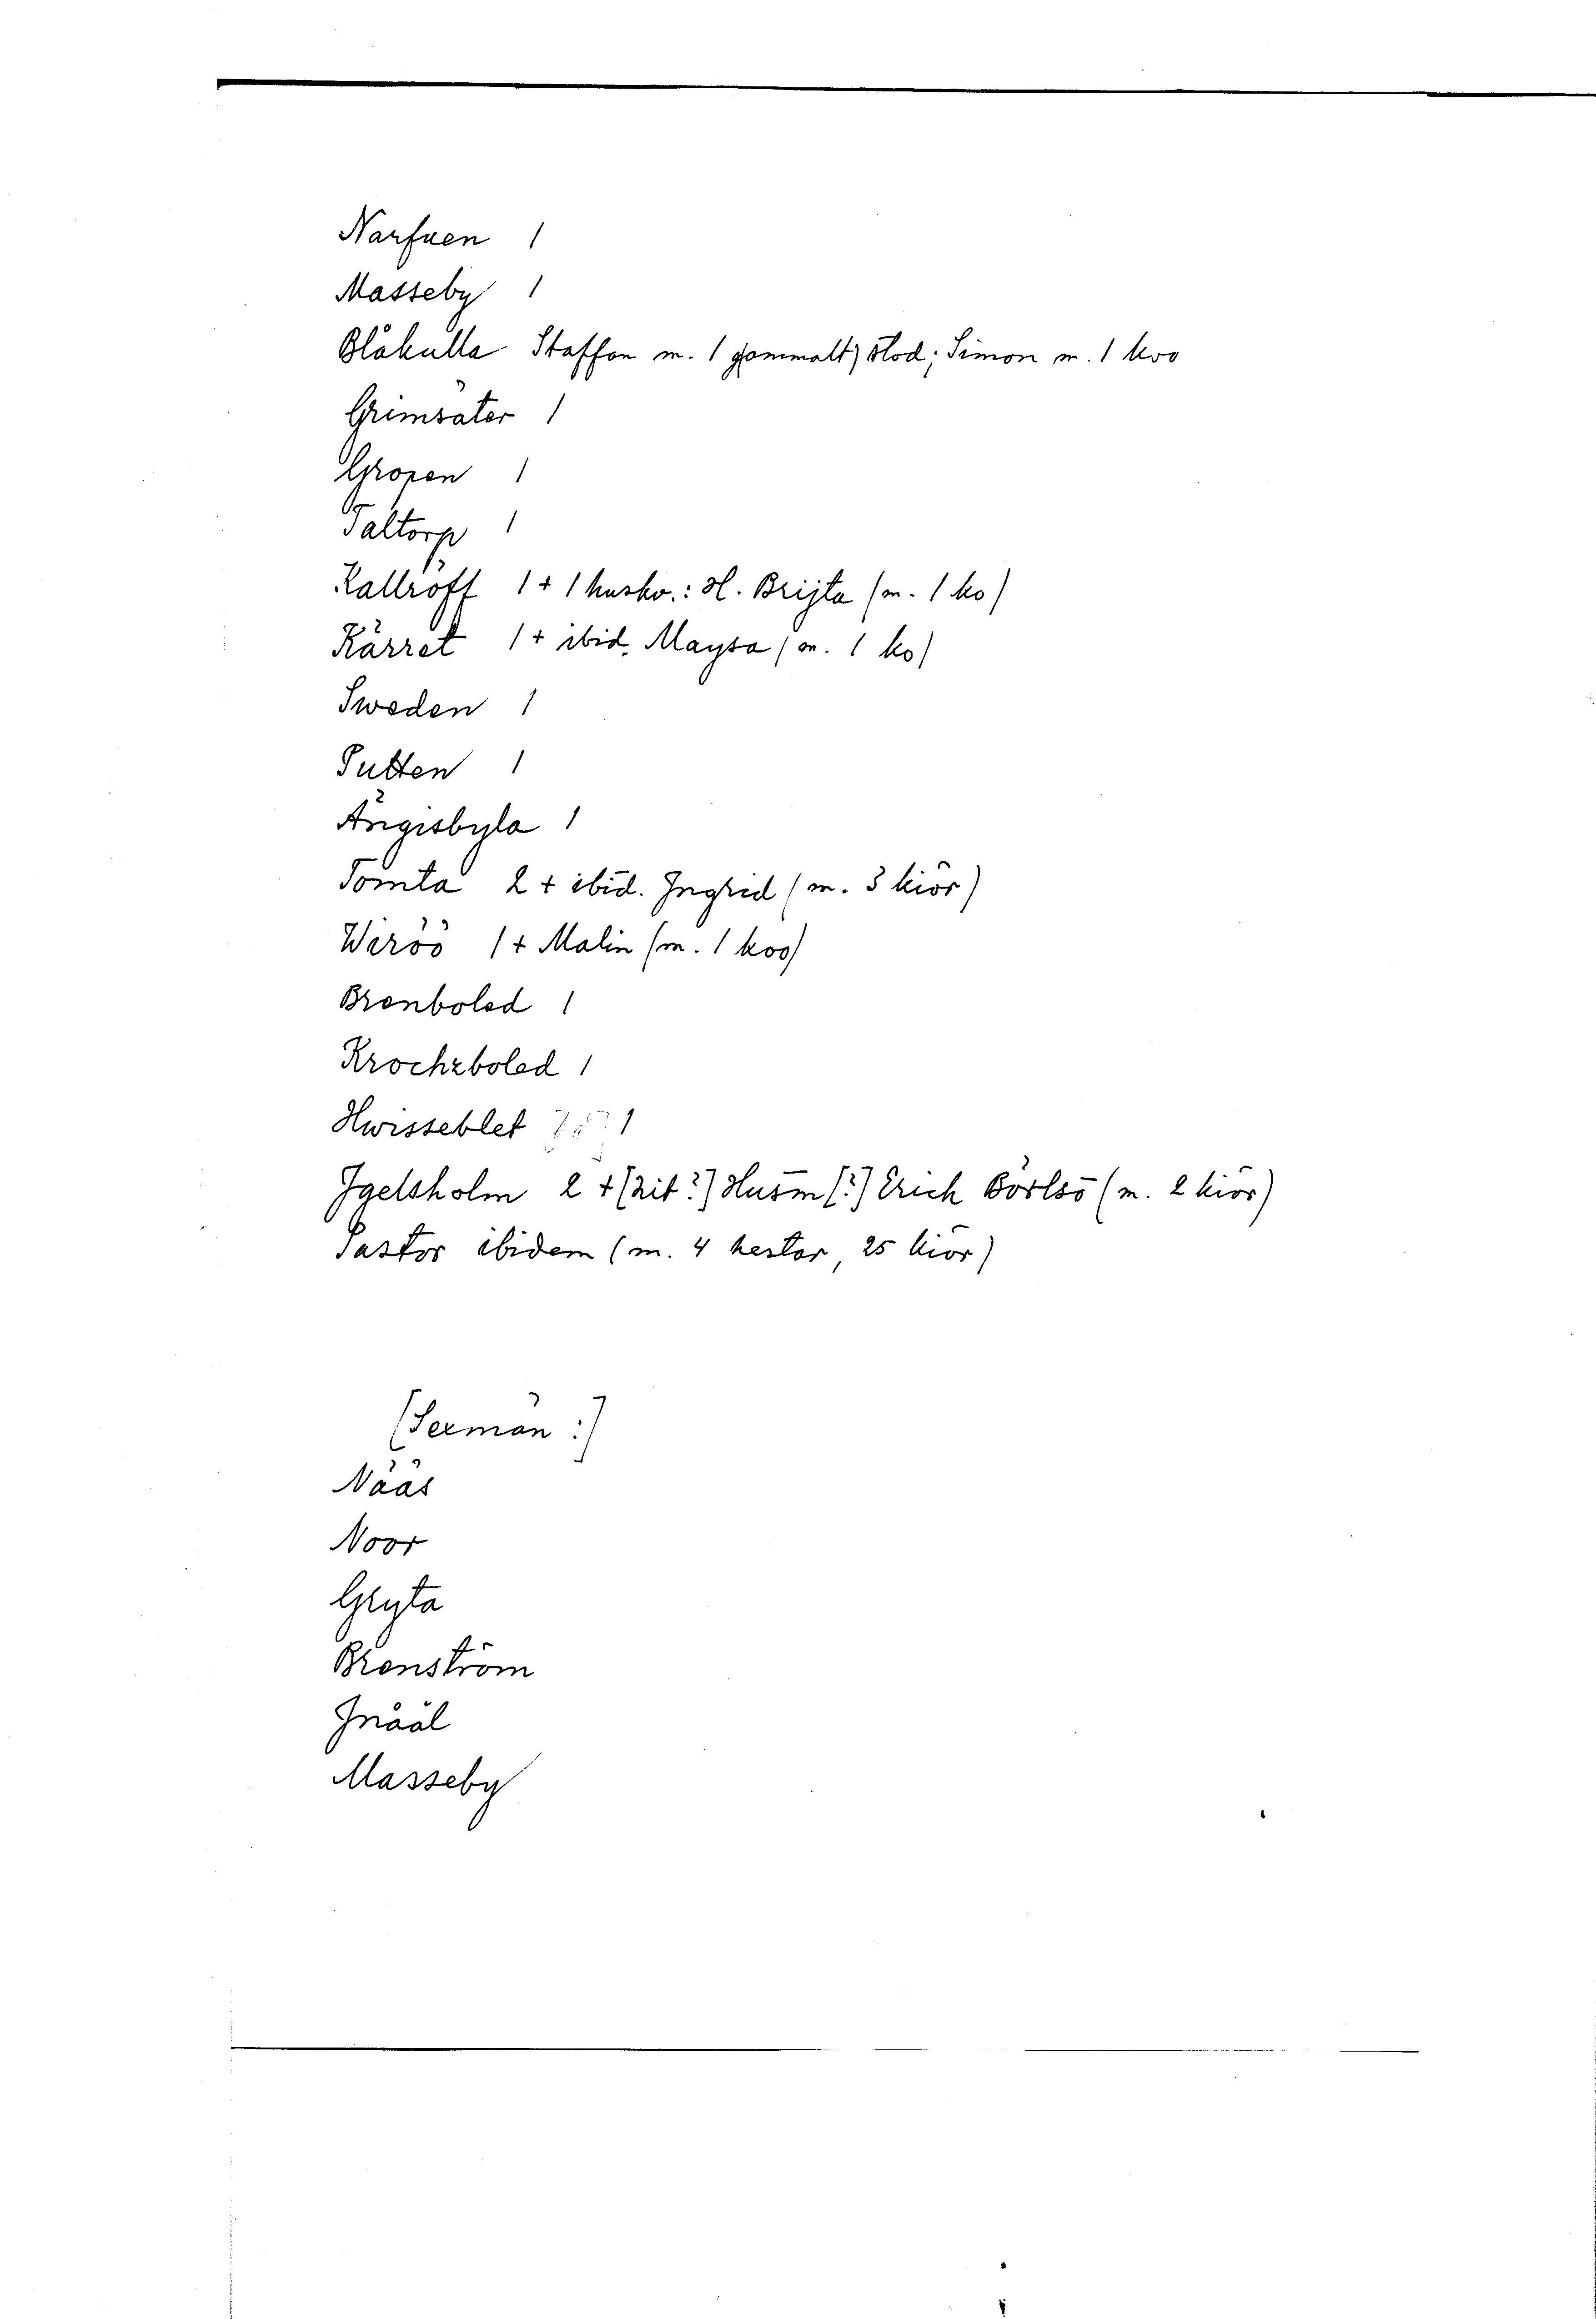 Narfuen 1
Masseby 1
Blåkulla Staffan m. 1 gammalt stod; Simon m. 1 koo
Grimsäter 1
Gropen 1
Taltorp 1
Kallröft 1 + 1 huskv.: H. Brijta (m. 1 ko)
Kärret 1 + ibid. Maysa (m. 1 ko)
Sweden 1
Putten 1
Ängisbyla 1
Tomta 2 + ibid. Ingrid (m. 3 kiör)
Wiröö 1 + Malin (m. 1 koo)
Brenboled 1
Krochzboled 1
Hwisseblet 1
Igelsholm 2 + [nit?] Husm [?] Erich Börlsö (m. 2 kiör)
Pastor ibidem (m. 4 hestar, 25 kiör)
[Sexmän:]
Nääs
Noor
Gryta
Brenström
Inåål
Masseby